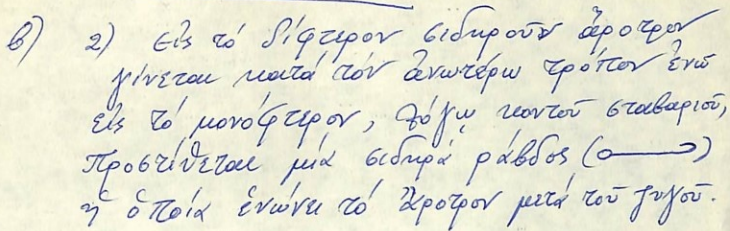 β) 2) Εἰς τό δίφτερον σιδηροῦν ἄροτρον
γίνεται κατά τόν ἀνωτέρω τρόπον ἐνῶ
εἰς τό μονόφτερον, λόγῳ κοντοῦ σταβαριοῦ,
προστίθεται μιά σιδηρά ράβδος ( )
ἡ ὁποία ἑνώνει τό ἄροτρον μετά τοῦ ζυγοῦ.